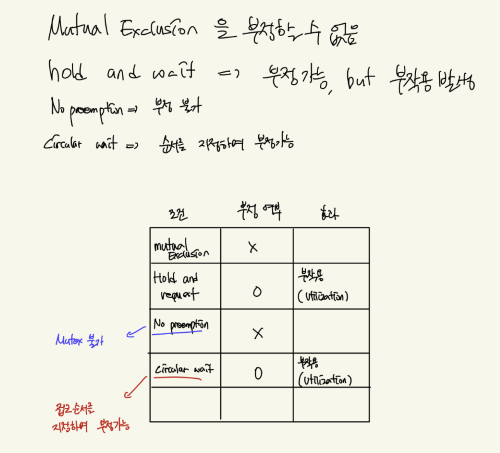 Mutual Exclusion 을 부정할 수 없음
hold and wait => 부정가능, but 부작용 발생
No preemption => 부정 불가
Circular wait => 순서를 지정하여 부정가능
조건 부정 여부 효과
mutual Exclusion X
Hold and request O 부작용 (Utilization)
No preemption X
Mutex 불가
Circular wait O 부작용 (Utilization)
순서를
지정하여 부정가능